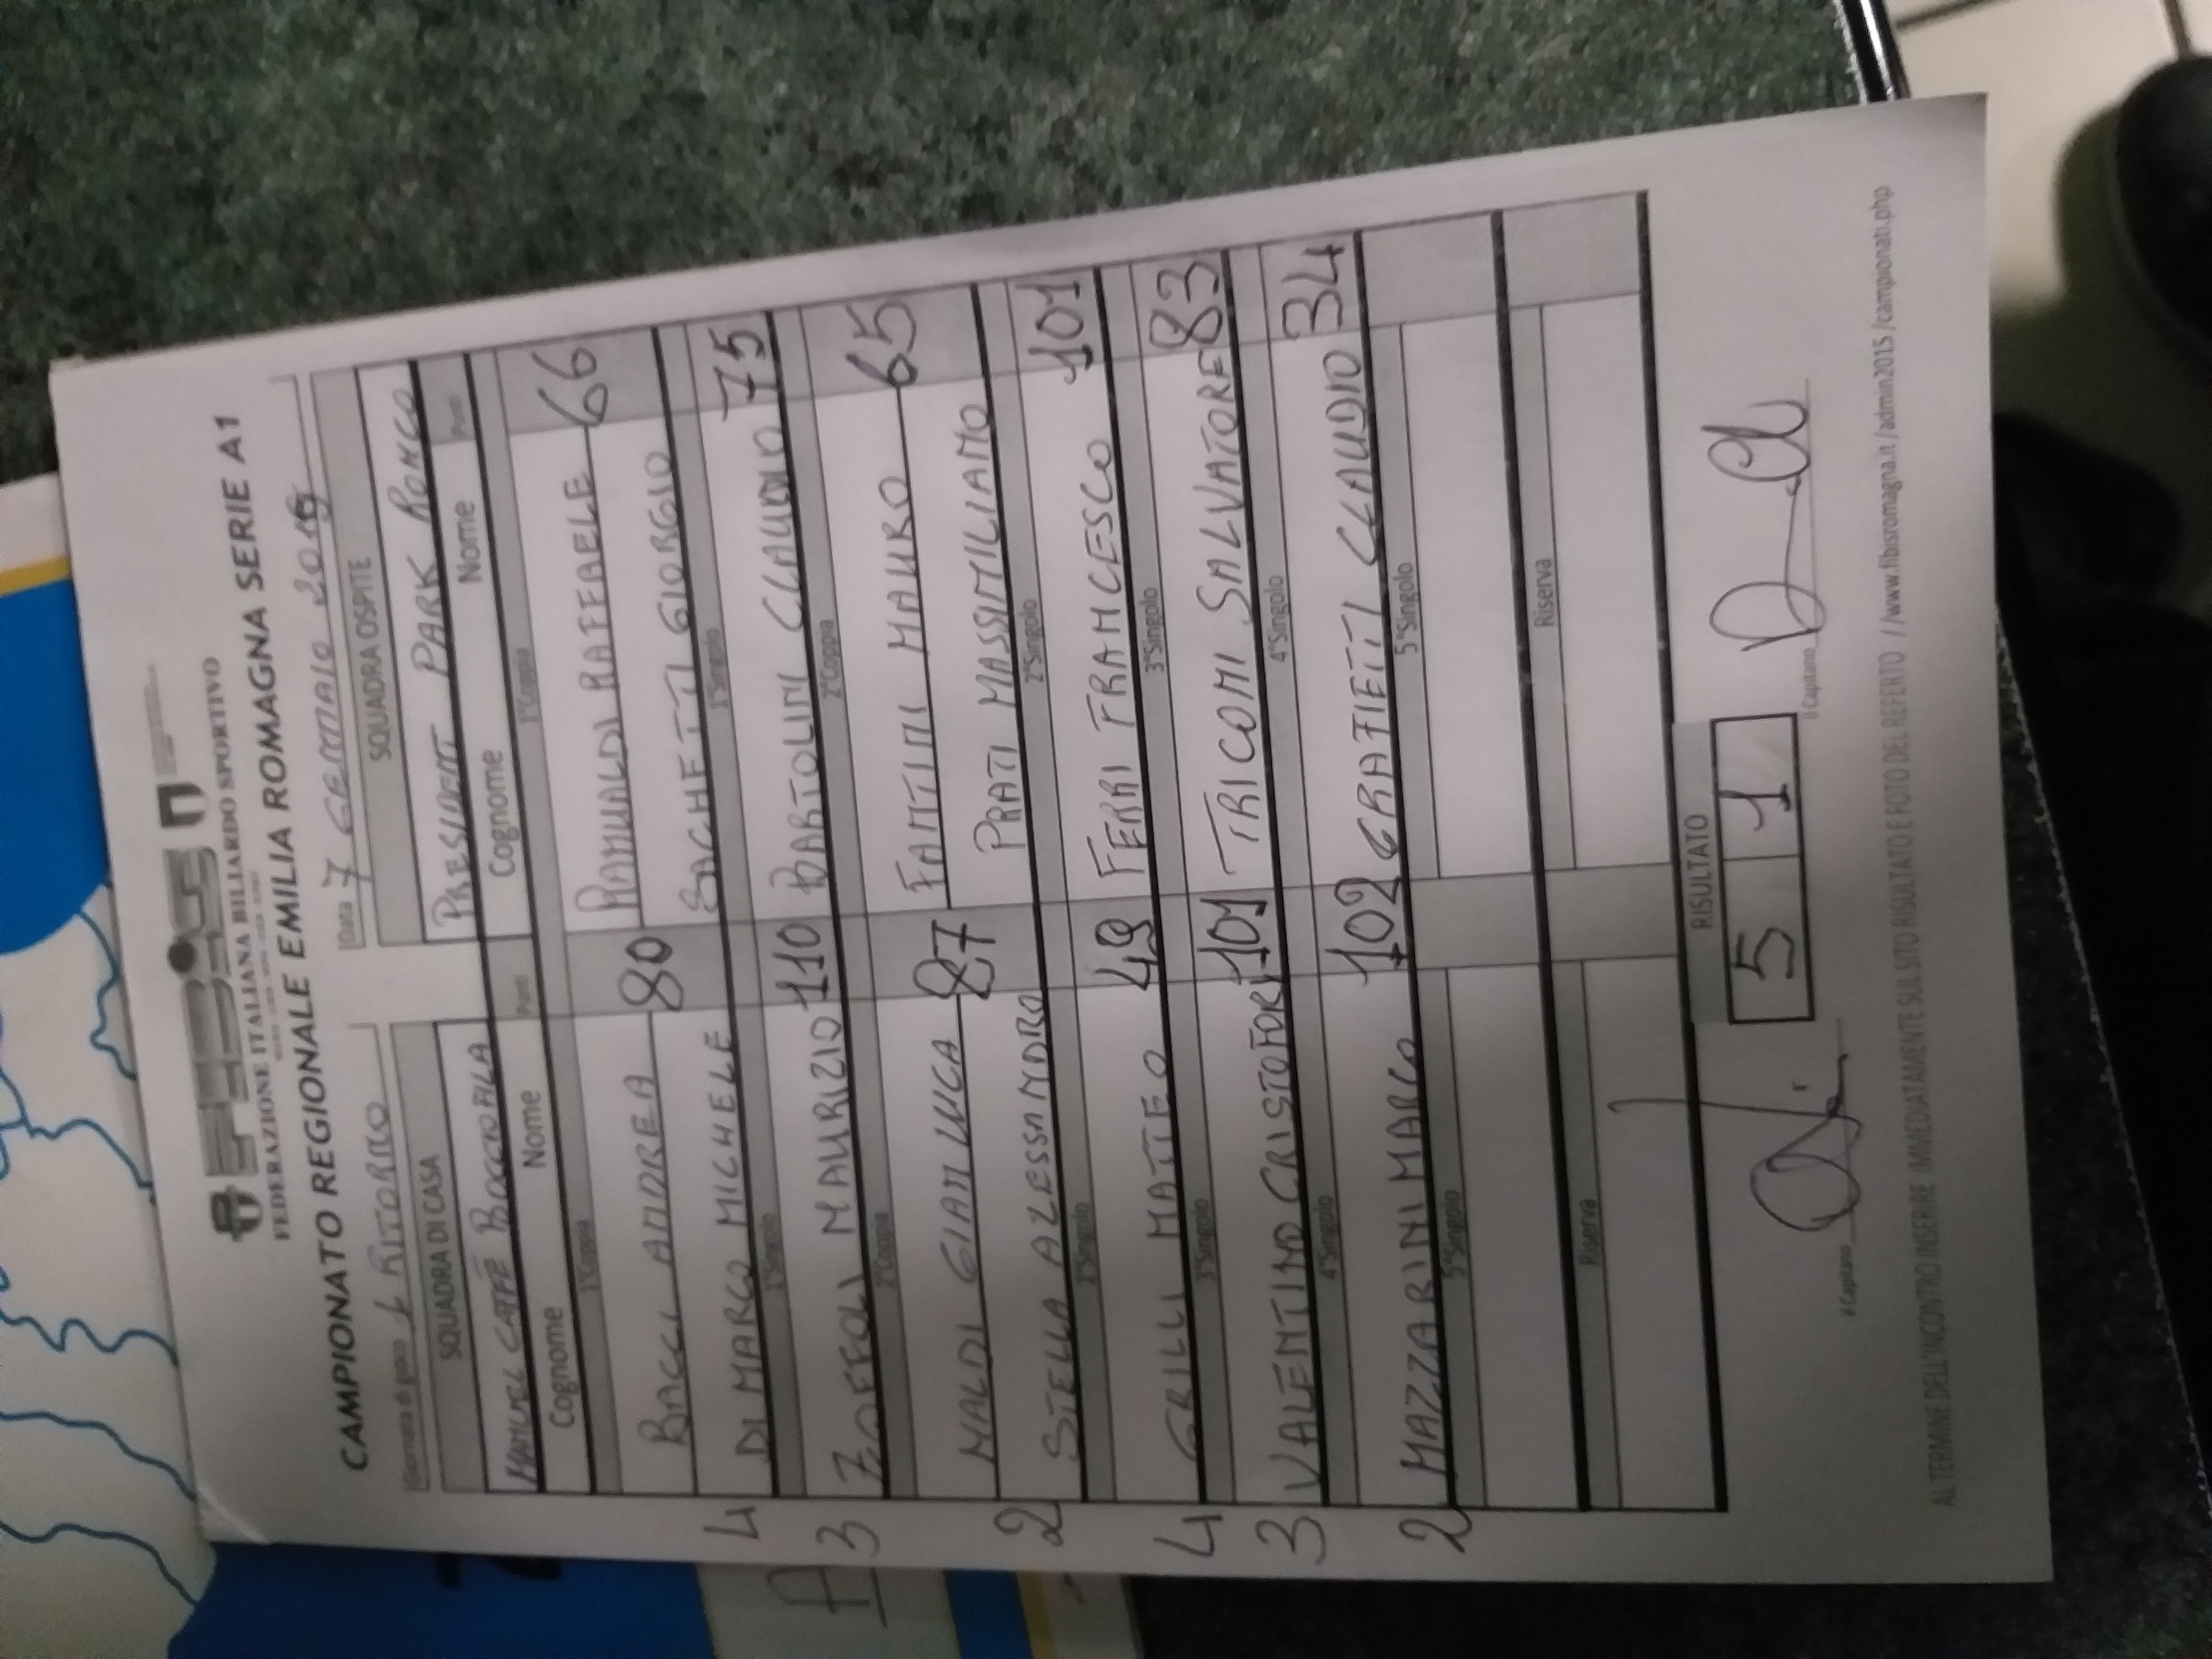 FEDERAZIONE ITALIANA BILIARDO SPORTIVO
CAMPIONATO REGIONALE EMILIA ROMAGNA SERIE A1
Giornata di gioco 1 RITORNO Data 7 GENNAIO 2019
SQUADRA DI CASA SQUADRA OSPITE
MANUEL CAFFÈ BOCCIOFILA PRESIDENT PARK RONCO
Cognome Nome Punti Cognome Nome Punti
1°Coppia 1°Coppia
BACCI ANDREA 80 RAMUALDI RAFFAELE 66
4 DI MARCO MICHELE SACHETTI GIORGIO
1°Singolo 1°Singolo
A 3 ZOFFOLI MAURIZIO 110 BARTOLINI CLAUDIO 75
2°Coppia 2°Coppia
NALDI GIANLUCA 87 FANTINI MAURO 65
2 STELLA ALESSANDRO PRATI MASSIMILIANO
2°Singolo 2°Singolo
4 GRILLI MATTEO 49 FERRI FRANCESCO 101
3°Singolo 3°Singolo
3 VALENTINO CRISTOFORI 101 TRICOMI SALVATORE 83
4°Singolo 4°Singolo
2 MAZZARINI MARCO 102 GRAZIETTI CLAUDIO 34
5°Singolo 5°Singolo
Riserva Riserva
RISULTATO
5 1
Il Capitano Il Capitano
AL TERMINE DELL'INCONTRO INSERIRE IMMEDIATAMENTE SUL SITO RISULTATO E FOTO DEL REFERTO //www.fibisromagna.it/admin2015/campionati.php